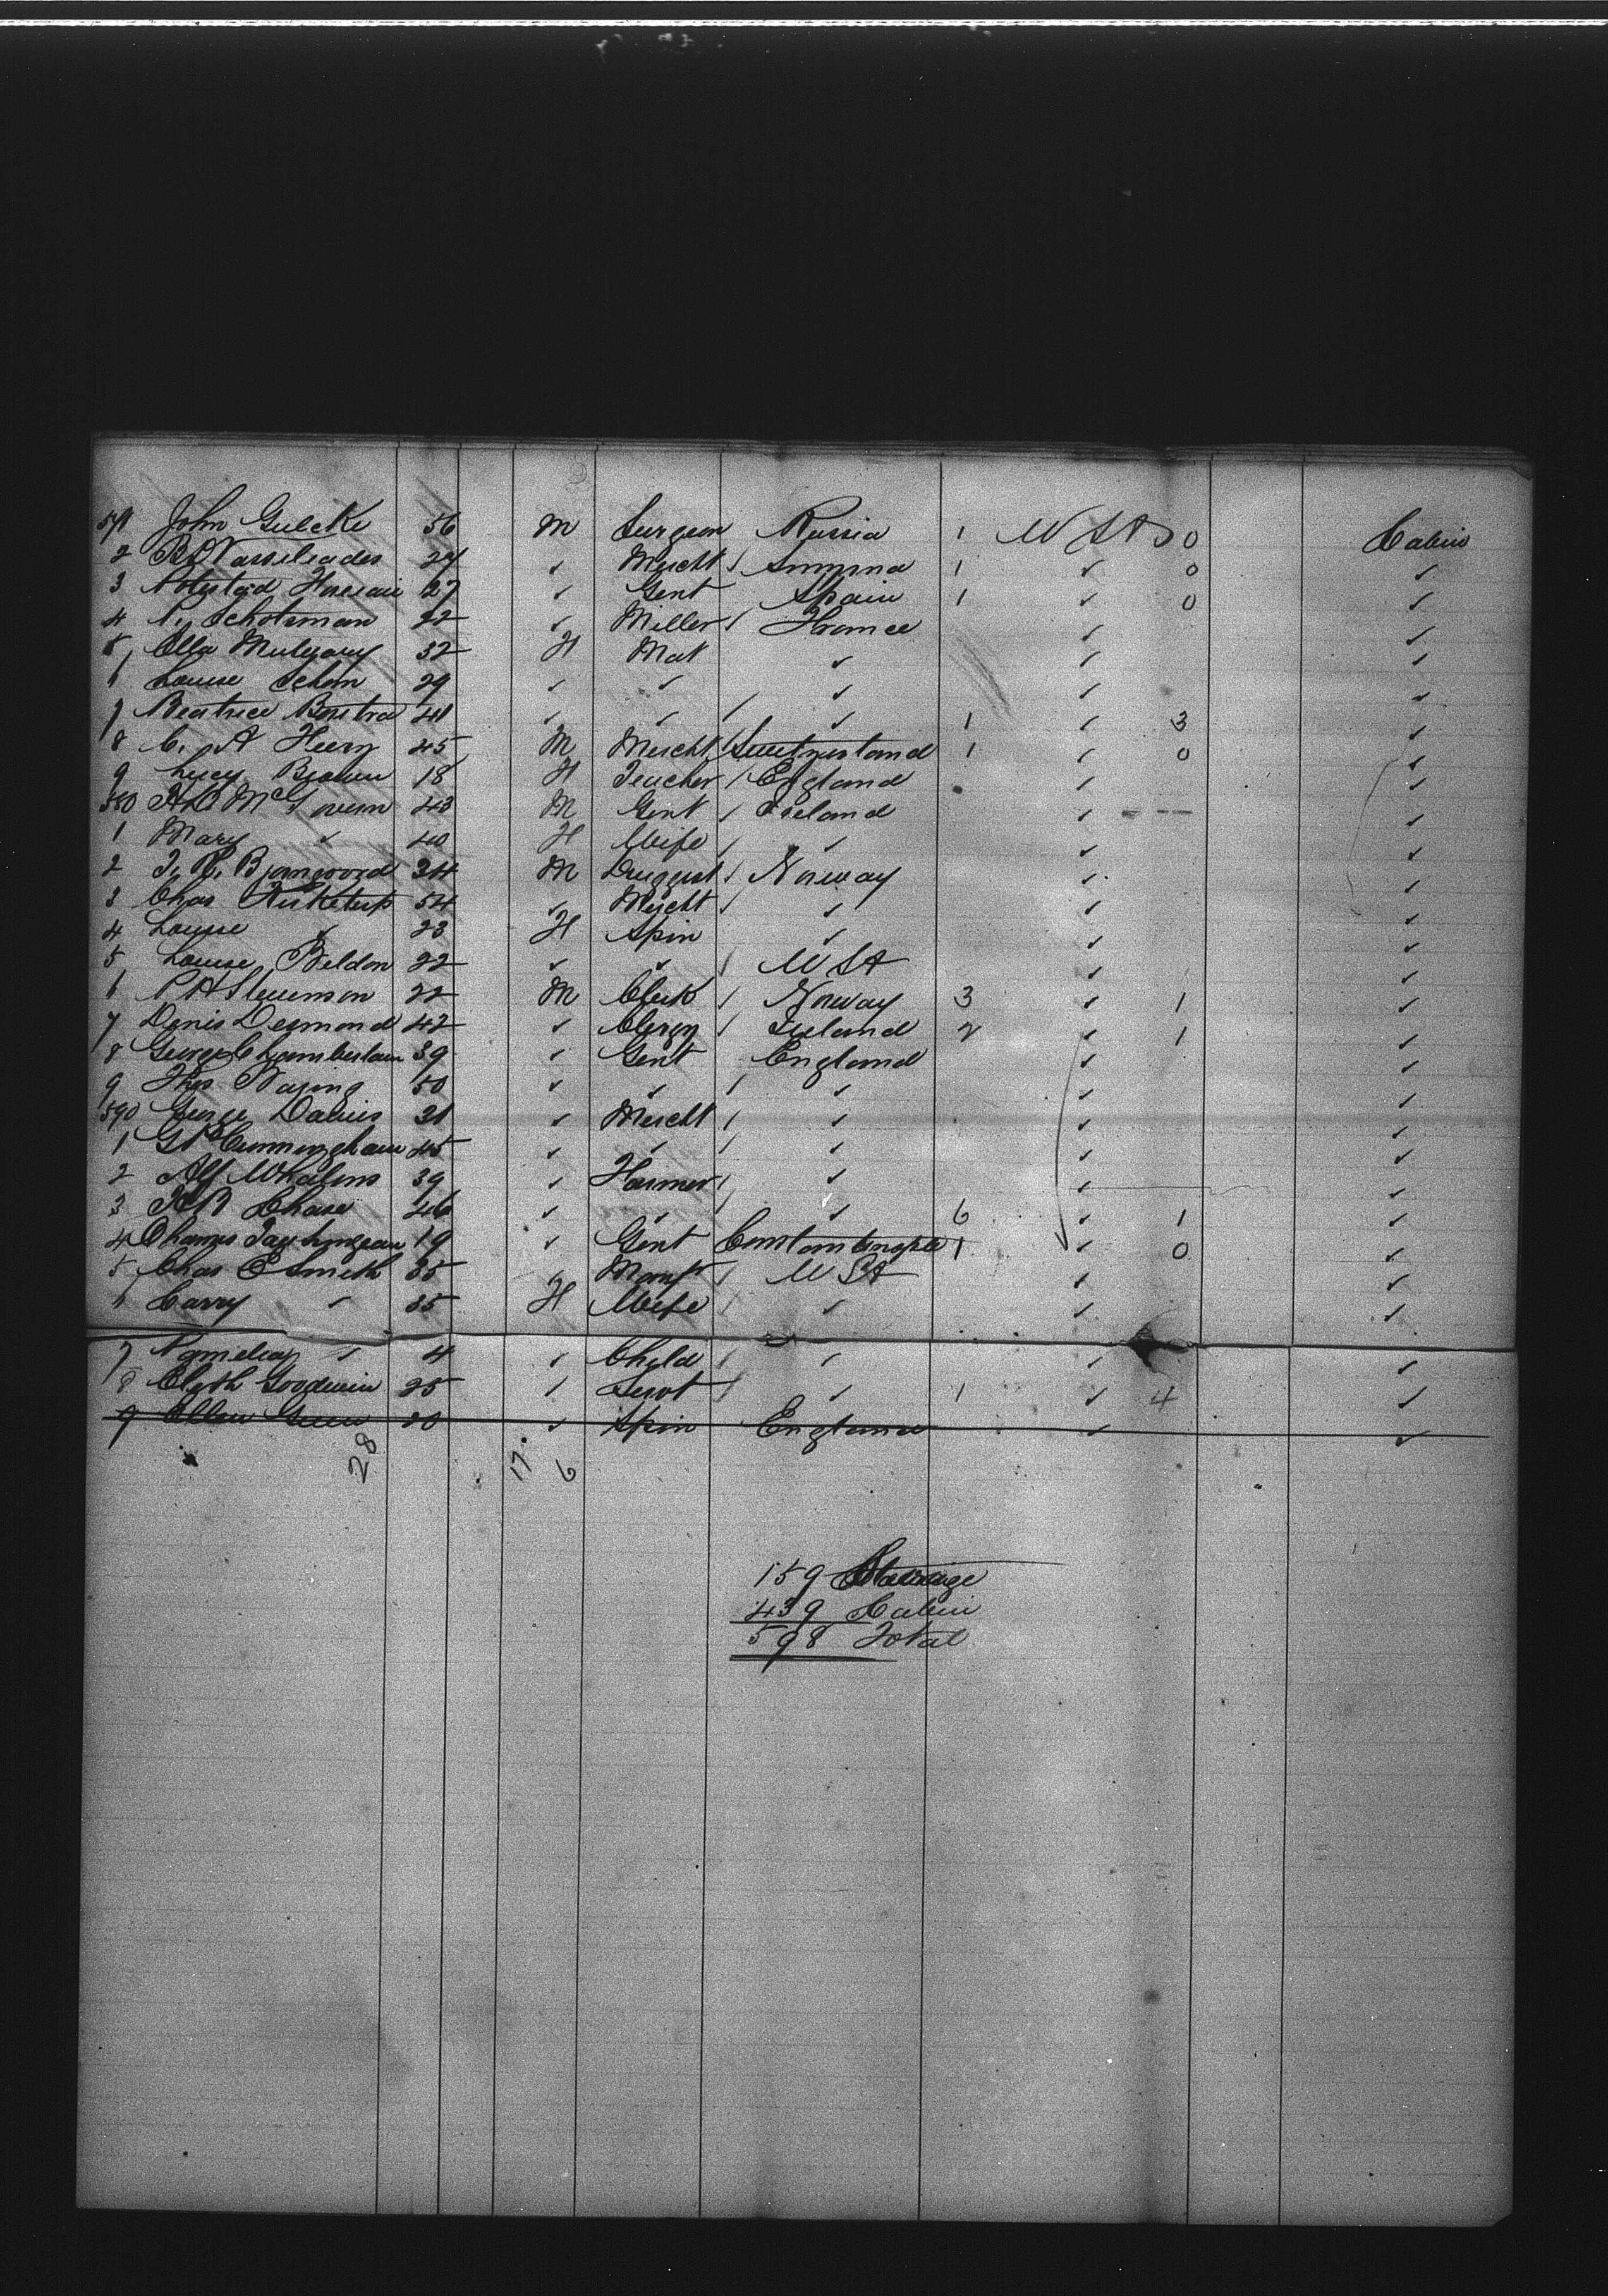 571 John Gulcke 56 M Surgeon Russia 1 USA 0 Cabin
2 Vassileades 27 ✓ Mercht / Smyrna 1 ✓ 0 ✓
3 27 ✓ Gent Spain 1 ✓ 0 ✓
4 Schotsman 22 ✓ Miller / France ✓ ✓
5 Ella 32 F Mat ✓ ✓ ✓
6 Louise Schon 29 ✓ ✓ ✓ ✓ ✓
7 Beatrice 41 ✓ ✓ / ✓ 1 ✓ 3 ✓
8 C. A 45 M Mercht / Switzerland 1 ✓ 0 ✓
9 Lucy Brown 18 F Teacher / England ✓ ✓
580 McGovern 43 M Gent / Ireland ✓ ✓
1 Mary ✓ 40 F Wife / ✓ ✓ ✓
2 34 M Druggist / Norway ✓ ✓
3 Chas 54 ✓ Mercht / ✓ ✓ ✓
4 Louise ✓ 23 F Spin ✓ ✓ ✓
5 Louise Beldon 22 ✓ ✓ / USA ✓ ✓
6 Stevenson 22 M Clerk / Norway 3 ✓ 1 ✓
7 Denis Desmond 42 ✓ Clergy / Ireland 2 ✓ 1 ✓
8 George Chamberlain 39 ✓ Gent England ✓ ✓
9 Thos 50 ✓ ✓ / ✓ ✓ ✓
590 George Davies 31 ✓ Mercht / ✓ ✓ ✓
1 Cunningham 45 ✓ ✓ / ✓ ✓ ✓
2 Alf 39 ✓ Farmer / ✓ ✓ ✓
3 Chase 46 ✓ ✓ / ✓ 6 ✓ 1 ✓
4 19 ✓ Gent Constantinople 1 ✓ 0 ✓
5 Chas E Smith 35 ✓ Manfr / USA ✓ ✓
6 Carry ✓ 35 F Wife / ✓ ✓ ✓
7 ✓ 4 ✓ Child / ✓ ✓ ✓
8 Elizth Goodwin 25 ✓ Servt / ✓ 1 ✓ 4 ✓
9 Ellen Green 20 ✓ Spin England ✓ ✓
28 17 6
159 Steerage
439 Cabin
598 Total